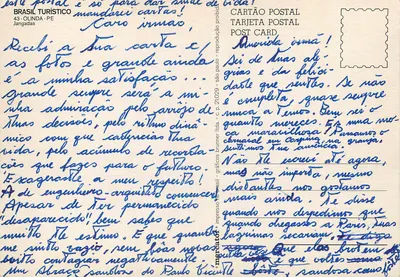 este postal é só para dar sinal de vida!
mandarei cartas!
BRASIL TURÍSTICO
43 - OLINDA - PE
Jangadas
Caro irmão
Recebi a sua carta e,
as fotos e grande ainda
é a minha satisfação...
grande sempre será a minha
admiração pelo arrojo de
tuas decisões, pelo ritmo dinâ-
mico com que
pelo acúmulo de
ções que fazes para o futuro.
Exageraste a meu respeito!
A de engenheiro-arquiteto
Apesar de ter permanecido
"desaparecido", bem sabes que
muito te estimo. E que quando
me sinto vazio, sem boas novas
sorrio contagias negativamente.
Um abraço santos do Paulo Vicente
CARTÃO POSTAL
TARJETA POSTAL
POST CARD
Querida irmã!
Sei de tuas ale-
grias e da felici-
dade que sentes. Se não
é completa, quase sempre
nunca a temos. Bem sei o
quanto mereces. És uma mo-
ça maravilhosa!
na granja,
sentimos tua ausência.
Não te escrevi até agora,
mas não importa, mesmo
distantes nos gostamos
mais ainda. Te disse
quando nos despedimos que
quando chegasses a Paris, tuas
Que elas brotem
e que voltes
saudoso